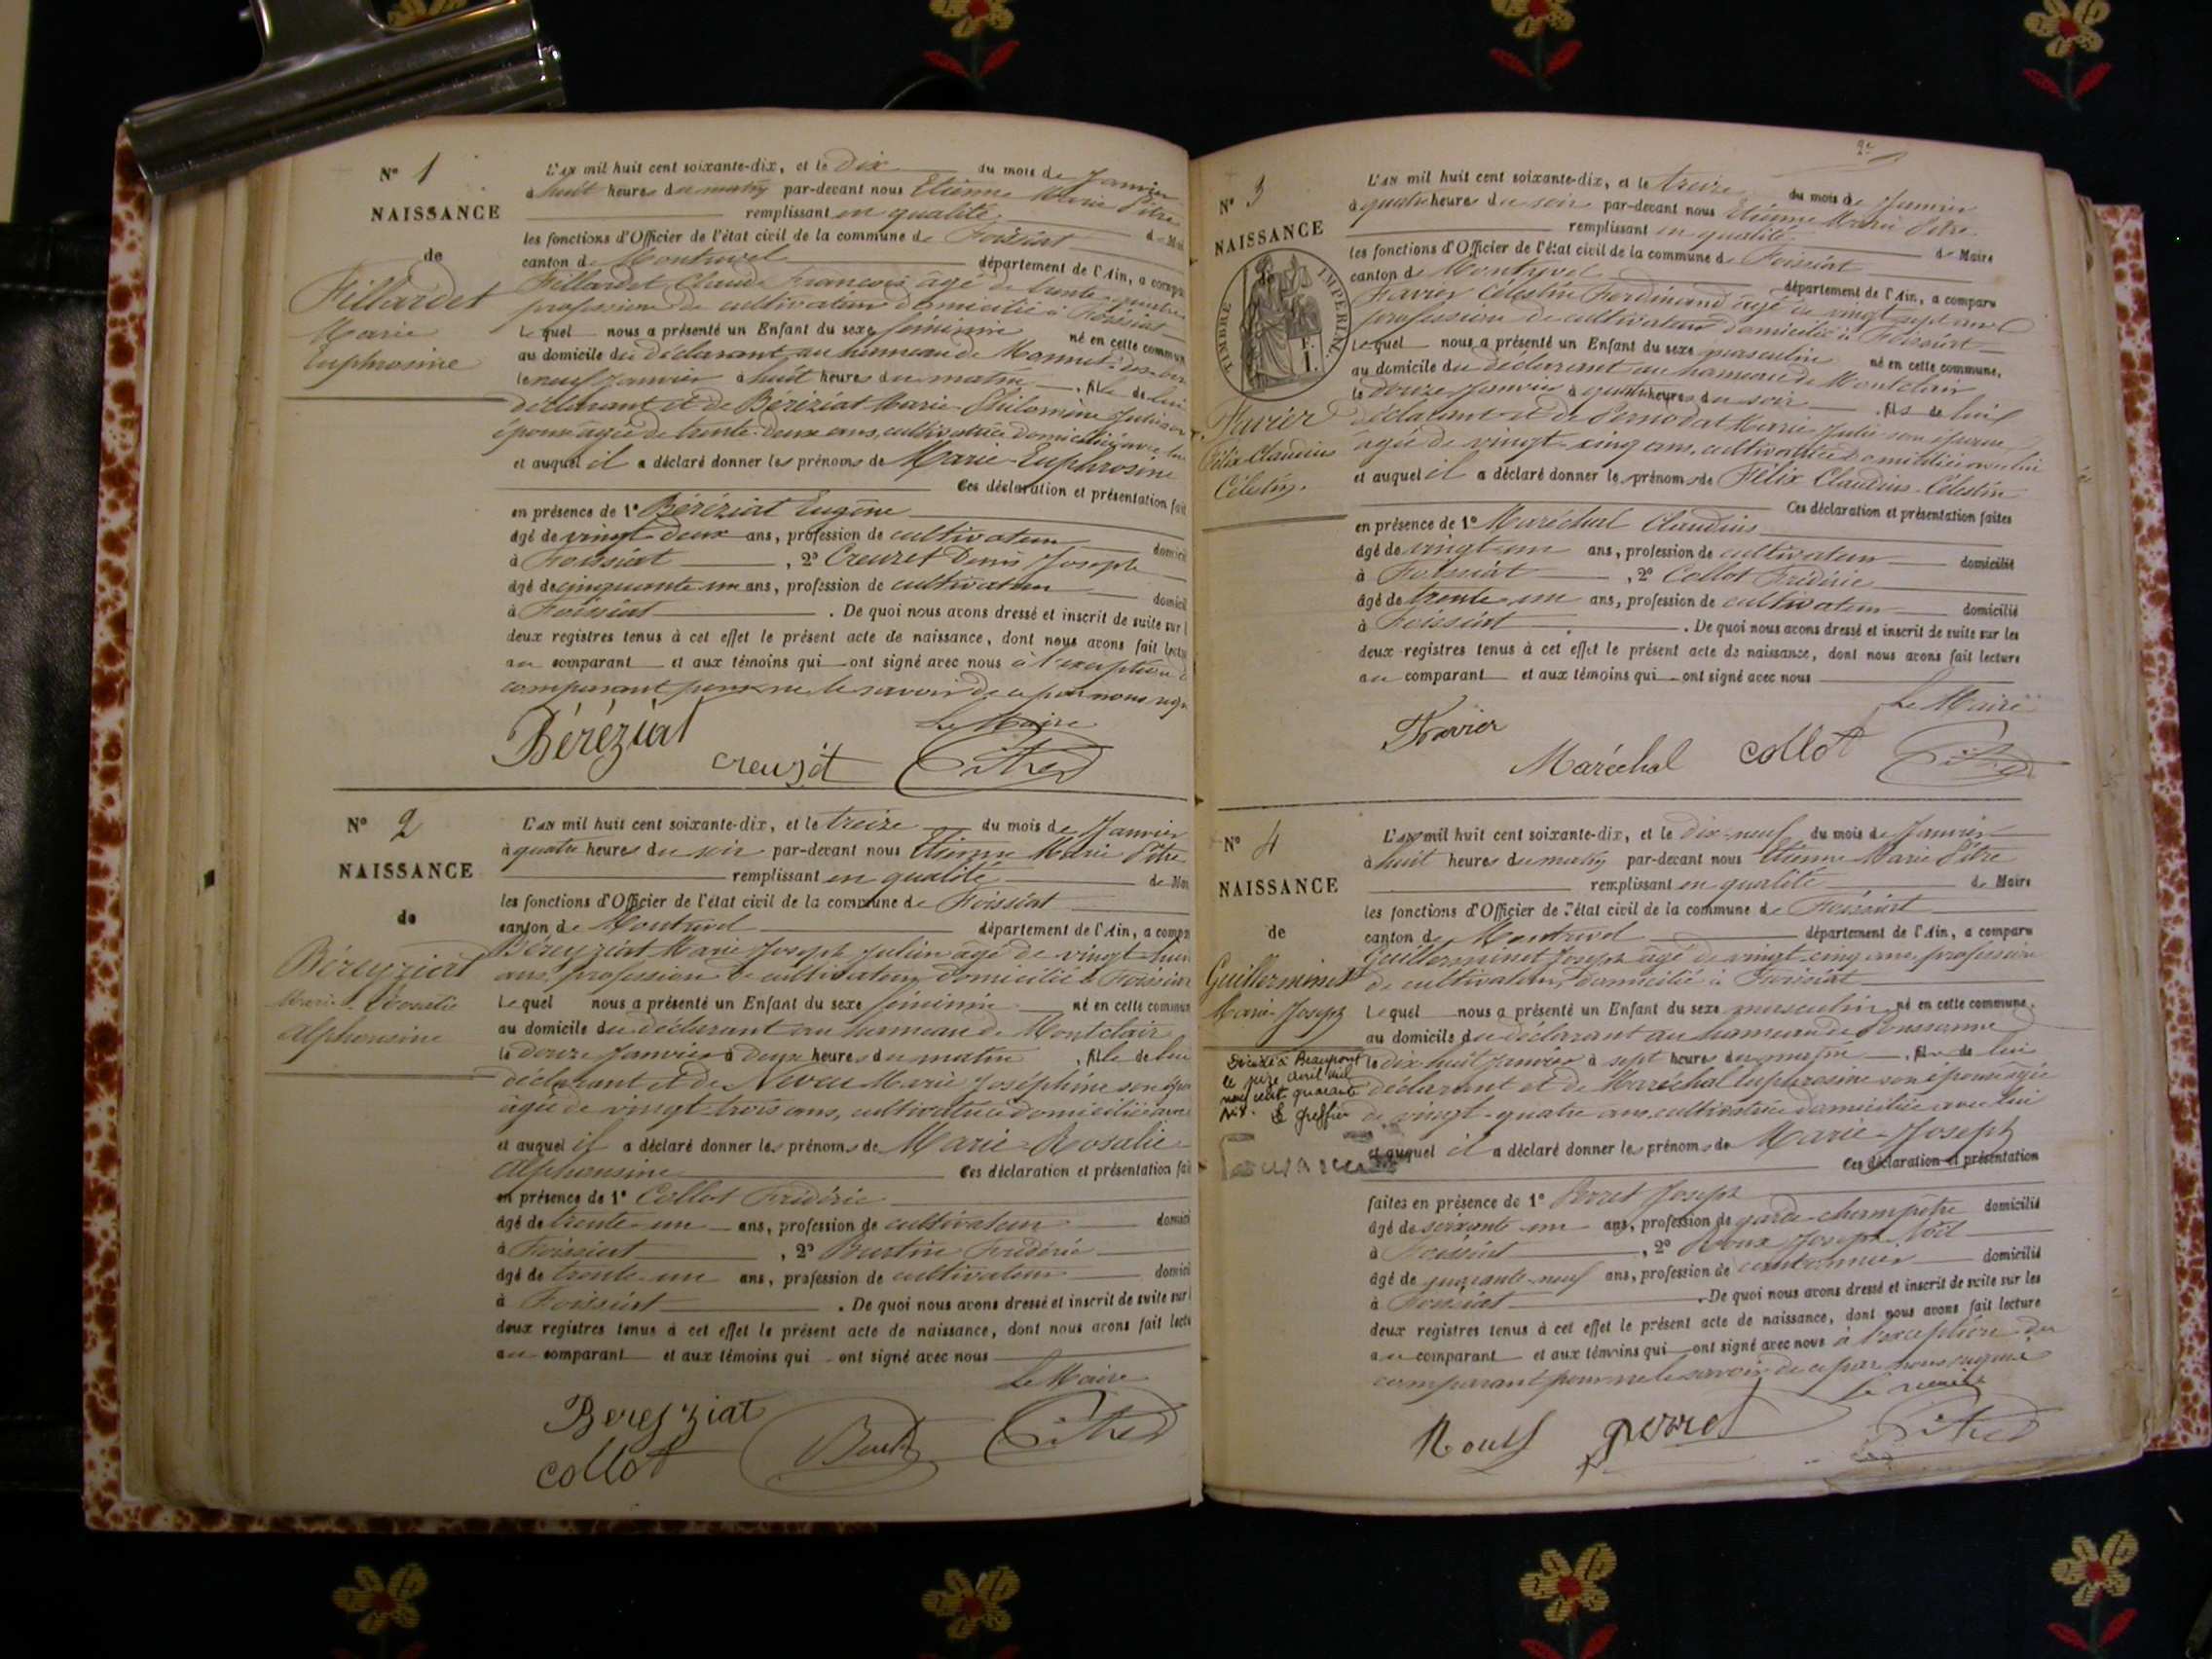 N° 1
NAISSANCE
de
Fillardet
Marie
Euphrosine
L'AN mil huit cent soixante-dix, et le dix du mois de Janvier
à huit heures du matin par-devant nous Etienne Marie Pitre
remplissant en qualité de Mai
les fonctions d'Officier de l'état civil de la commune de Foissiat
canton de Montrevel département de l'Ain, a compa
Fillardet Claude François âgé de trente-quatre
profession de cultivateur domicilié à Foissiat
Lequel nous a présenté un Enfant du sexe féminin né en cette commun
au domicile du déclarant au hameau de
le neuf Janvier à huit heures du matin , fille de lui
déclarant et de Béréziat Marie Philomène Julie son
épouse âgée de trente-deux ans, cultivatrice domiciliée avec lui
et auquel il a déclaré donner les prénoms de Marie-Euphrosine
Ces déclaration et présentation fait
en présence de 1° Béréziat Eugène
âgé de vingt-deux ans, profession de cultivateur domicil
à Foissiat , 2° Creuzet Denis Joseph
âgé de cinquante un ans, profession de cultivateur domicil
à Foissiat . De quoi nous avons dressé et inscrit de suite sur l
deux registres tenus à cet effet le présent acte de naissance, dont nous avons fait lectu
au comparant et aux témoins qui ont signé avec nous à l'exception d
comparant pour ne le savoir de ce par nous requ
Le Maire
Béréziat
creuzet
Pitre
N° 2
NAISSANCE
de
Béreyziat
Marie Rosalie
Alphonsine
L'AN mil huit cent soixante-dix, et le treize du mois de Janvier
à quatre heures du soir par-devant nous Etienne Marie Pitre
remplissant en qualité de Mai
les fonctions d'Officier de l'état civil de la commune de Foissiat
canton de Montrevel département de l'Ain, a compa
Béreyziat Marie Joseph Julien âgé de vingt-huit
ans, profession de cultivateur, domicilié à Foissiat
Lequel nous a présenté un Enfant du sexe féminin né en cette commun
au domicile du déclarant au hameau de Montclair
le douze Janvier à deux heures du matin , fille de lui
déclarant et de Neveu Marie Joséphine son épou
âgée de vingt-trois ans, cultivatrice domiciliée avec
et auquel il a déclaré donner les prénoms de Marie-Rosalie-
Alphonsine Ces déclaration et présentation fai
en présence de 1° Collot Frédéric
âgé de trente-un ans, profession de cultivateur domici
à Foissiat , 2° Frédéric
âgé de trente-un ans, profession de cultivateur domici
à Foissiat . De quoi nous avons dressé et inscrit de suite sur l
deux registres tenus à cet effet le présent acte de naissance, dont nous avons fait lectu
au comparant et aux témoins qui ont signé avec nous
Le Maire
Bereyziat
collot
Pitre
2e
N° 3
NAISSANCE
de
TIMBRE IMPERIAL
F.
1.
Favier
Félix Claudius
Célestin.
L'AN mil huit cent soixante-dix, et le treize du mois de Janvier
à quatre heures du soir par-devant nous Etienne Marie Pitre
remplissant en qualité de Maire
les fonctions d'Officier de l'état civil de la commune de Foissiat
canton de Montrevel département de l'Ain, a comparu
Favier Célestin Ferdinand âgé de vingt-sept ans
profession de cultivateur domicilié à Foissiat
Lequel nous a présenté un Enfant du sexe masculin né en cette commune,
au domicile du déclarant au hameau de Montclair
le douze Janvier à quatre heures du soir , fils de lui
déclarant et de Pernodat Marie Julie son épouse
âgée de vingt-cinq ans, cultivatrice domiciliée avec lui
et auquel il a déclaré donner les prénoms de Félix Claudius Célestin
Ces déclaration et présentation faites
en présence de 1° Maréchal Claudius
âgé de vingt-un ans, profession de cultivateur domicilié
à Foissiat , 2° Collot Frédéric
âgé de trente-un ans, profession de cultivateur domicilié
à Foissiat . De quoi nous avons dressé et inscrit de suite sur les
deux registres tenus à cet effet le présent acte de naissance, dont nous avons fait lecture
au comparant et aux témoins qui ont signé avec nous
Le Maire
Favier
Maréchal
collot
Pitre
N° 4
NAISSANCE
de
Guillerminet
Marie-Joseph
Décédé à Beaupont
le onze avril mil
neuf cent quarante
six. Le Greffier
L'AN mil huit cent soixante-dix, et le dix-neuf du mois de Janvier
à huit heures du matin par-devant nous Etienne Marie Pitre
remplissant en qualité de Maire
les fonctions d'Officier de l'état civil de la commune de Foissiat
canton de Montrevel département de l'Ain, a comparu
Guillerminet Joseph âgé de vingt-cinq ans, profession
de cultivateur, domicilié à Foissiat
Lequel nous a présenté un Enfant du sexe masculin né en cette commune,
au domicile du déclarant au hameau de
le dix-huit Janvier à sept heures du matin , fils de lui
déclarant et de Maréchal Euphrosine son épouse âgée
de vingt-quatre ans, cultivatrice domiciliée avec lui
et auquel il a déclaré donner les prénoms de Marie-Joseph
Ces déclaration et présentation
faites en présence de 1° Perret Joseph
âgé de soixante-un ans, profession de garde-champêtre domicilié
à Foissiat , 2° Roux Joseph Noël
âgé de quarante-neuf ans, profession de cantonnier domicilié
à Foissiat . De quoi nous avons dressé et inscrit de suite sur les
deux registres tenus à cet effet le présent acte de naissance, dont nous avons fait lecture
au comparant et aux témoins qui ont signé avec nous à l'exception du
comparant pour ne le savoir de ce par nous requis
Le maire
Roux
perret
Pitre